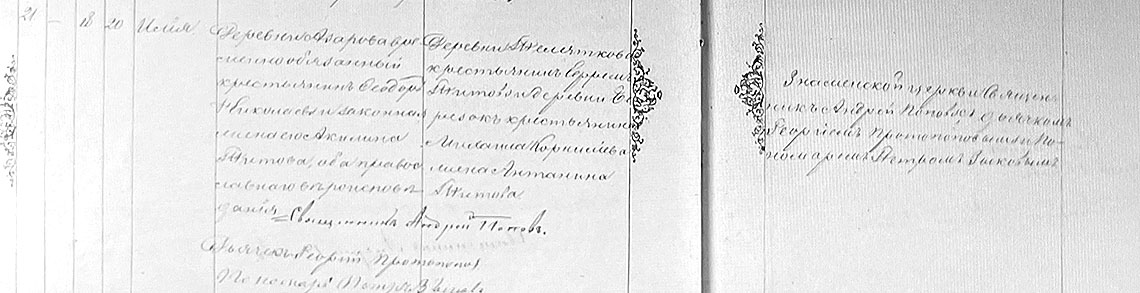 21 — 18 20 Илия
Деревни Азарова вре-
меннообязанный
крестьянинъ Ѳеодоръ
Николаевъ и законная
жена его Акилина
Титова, оба правос-
лавнаго вѣроисповѣ-
данія = Священникъ Андрей Поповъ.
Дьячекъ Георгій Протопопов
Пономарь Петръ Зыковъ
Деревни Телятково
крестьянинъ Ефремъ
Титовъ и деревни Бе-
резокъ крестьянина
Михаила Корнилѣва
жена Антанина
Титова
Знаменской церкви Священ-
никъ Андрей Поповъ съ дьячкомъ
Георгіемъ Протопоповымъ и По-
номаремъ Петромъ Зыковымъ